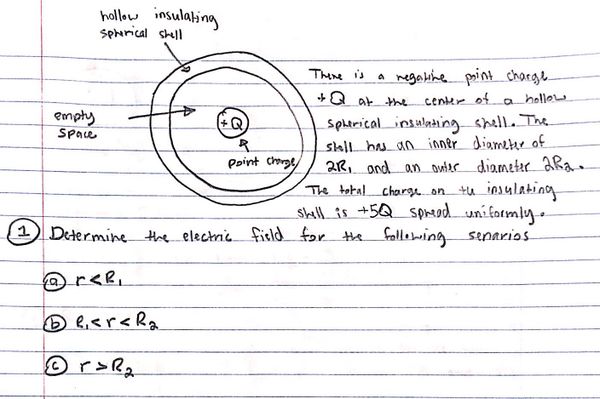 hollow insulating
spherical shell
There is a negative point charge
+Q at the center of a hollow
empty
space
+Q
spherical insulating shell. The
shell has an inner diameter of
point charge
2R₁ and an outer diameter 2R₂.
The total charge on the insulating
shell is +5Q spread uniformly.
1 Determine the electric field for the following senarios
a r<R₁
b R₁<r<R₂
c r>R₂